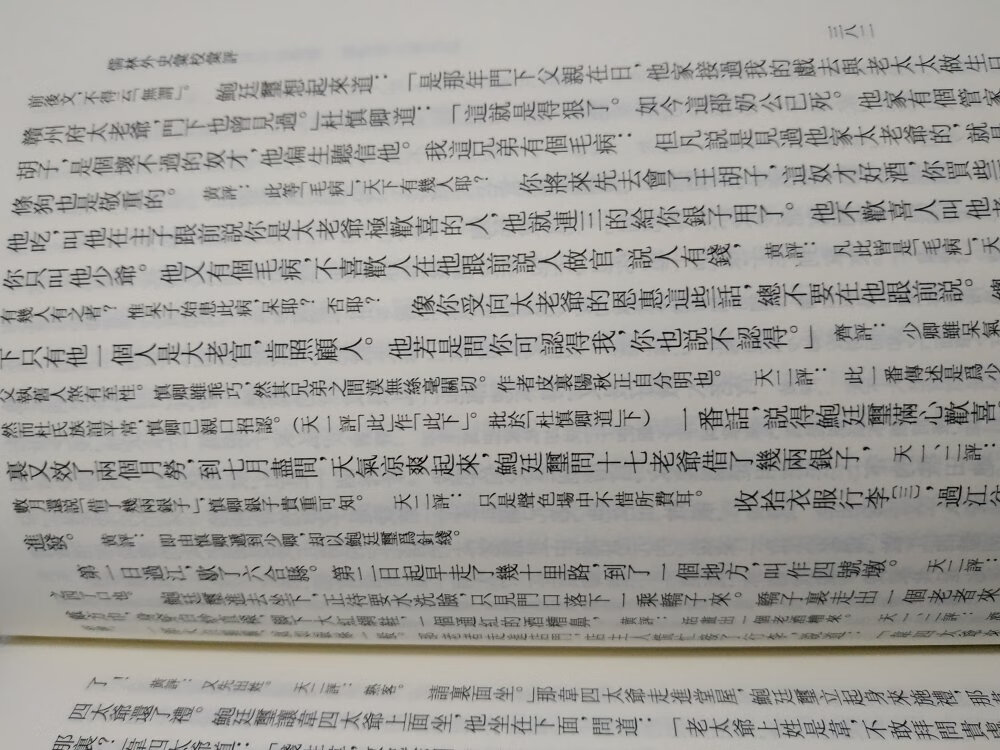 三八二
儒林外史彙校彙評
前後文，不得云「無謂」。　鮑廷璽想起來道：「是那年門下父親在日，他家接過我的戲去與老太太做生日
贛州府太老爺，門下也曾見過。」杜慎卿道：「這就是得狠了。如今這邵奶公已死。他家有個管家
胡子，是個壞不過的奴才，他偏生聽信他。我這兄弟有個毛病：但凡說是見過他家太老爺的，就
條狗也是敬重的。　黃評：此等「毛病」，天下有幾人耶？　你將來先去會了王胡子，這奴才好酒，你買些
他吃，叫他在主子跟前說你是太老爺極歡喜的人，他就連三的給你銀子用了。他不歡喜人叫他
你只叫他少爺。他又有個毛病，不喜歡人在他跟前說人做官，說人有錢，　黃評：凡此皆是「毛病」，天
有幾人有之者？惟呆子始患此病，呆耶？否耶？　像你受向太老爺的恩惠這些話，總不要在他跟前說。總
下只有他一個人是大老官，肯照顧人。他若是問你可認得我，你也說不認得。」　齊評：少卿雖呆氣
父執舊人煞有至性。慎卿雖乖巧，然其兄弟之間漠無絲毫關切。作者皮裏陽秋正自分明也。　天二評：此一番傳述是爲少
然而杜氏族誼平常，慎卿已親口招認。（天一評「此」作「此下」。批於「杜慎卿道」下）　一番話，說得鮑廷璽滿心歡喜
裏又效了兩個月勞，到七月盡間，天氣涼爽起來，鮑廷璽問十七老爺借了幾兩銀子，　天一、二評：
數月還說「借了幾兩銀子」，慎卿銀子貴重可知。　天二評：只是聲色場中不惜所費耳。　收拾衣服行李〔三〕，過江
進發。　黃評：即由慎卿遞到少卿，却以鮑廷璽爲針綫。
第一日過江，歇了六合縣。第二日起早走了幾十里路，到了一個地方，叫作四號墩。　天二評：
鮑廷璽進去坐下，正待要水洗臉，只見門口落下一乘轎子來。轎子裏走出一個老者來
一個通紅的酒糟鼻，　黃評：活畫出一個老酒糟來。　天一、二評：
了！　黃評：又先出姓。　天二評：熟客。　請裏面坐。」那韋四太爺走進堂屋，鮑廷璽立起身來施禮，那
四太爺還了禮。鮑廷璽讓韋四太爺上面坐，他坐在下面，問道：「老太爺上姓是韋，不敢拜問貴